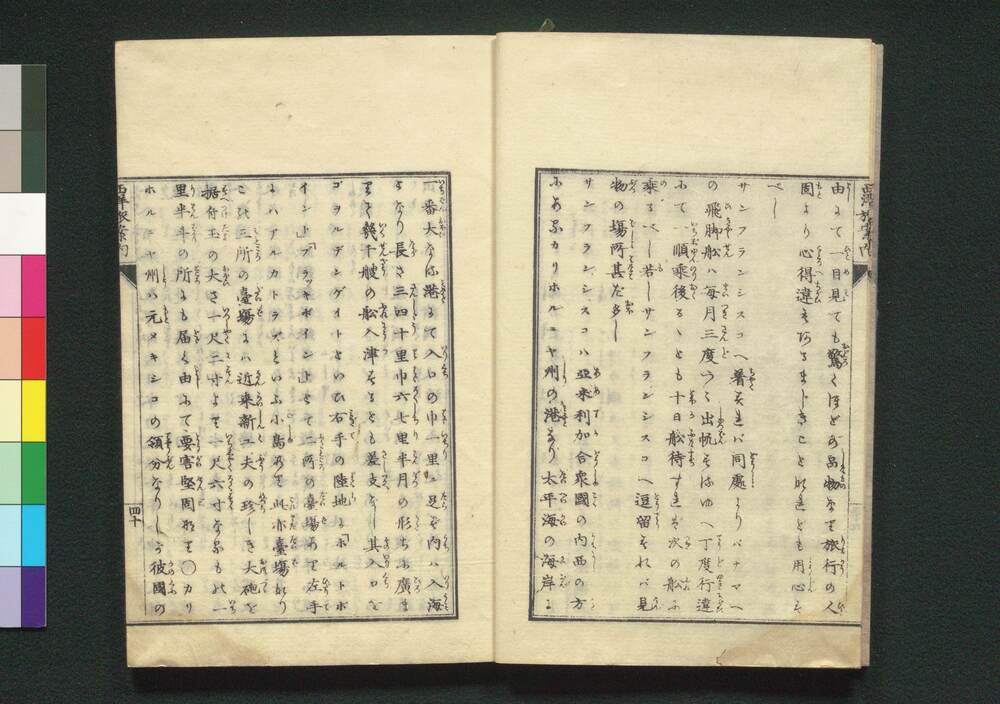 由にて一目見ても驚くほどの品物なり旅行の人
固より心得違はあるまじきことなれども用心す
べし
サンフランシスコへ着すれバ同處よりパナマへ
の飛脚舩ハ毎月三度づゝ出帆するゆへ丁度行違
ふて一順乗後るゝとも十日舩待すれば次の舩に
乗るべし若しサンフランシスコへ逗留すれバ見
物の場所甚だ多し
サンフランシスコハ亞米利加合衆國の内西の方
にあるカリホルニヤ州の港なり太平海の海岸に
一番大なる港にて入口の巾一里に足らず内ハ入海
となり長さ三四十里巾六七里半月の形ちに廣まり
て幾千艘の舩入津するとも差支なし其入口を
ゴヲルデンゲイトといひ右手の陸地に「ホルトポ
イント」「ブラツキポイント」とて二所の臺場あり左手
にハアルカトラズといふ小島ありて此亦臺場なり
この三所の臺場にハ近来新工夫の珍しき大砲を
据付玉の大さ一尺二寸より一尺六寸なるもの一
里半斗の所にも届く由にて要害堅固なり〇カリ
ホルニヤ州ハ元メキシコの領分なりしが彼國の
西洋旅案内
四十